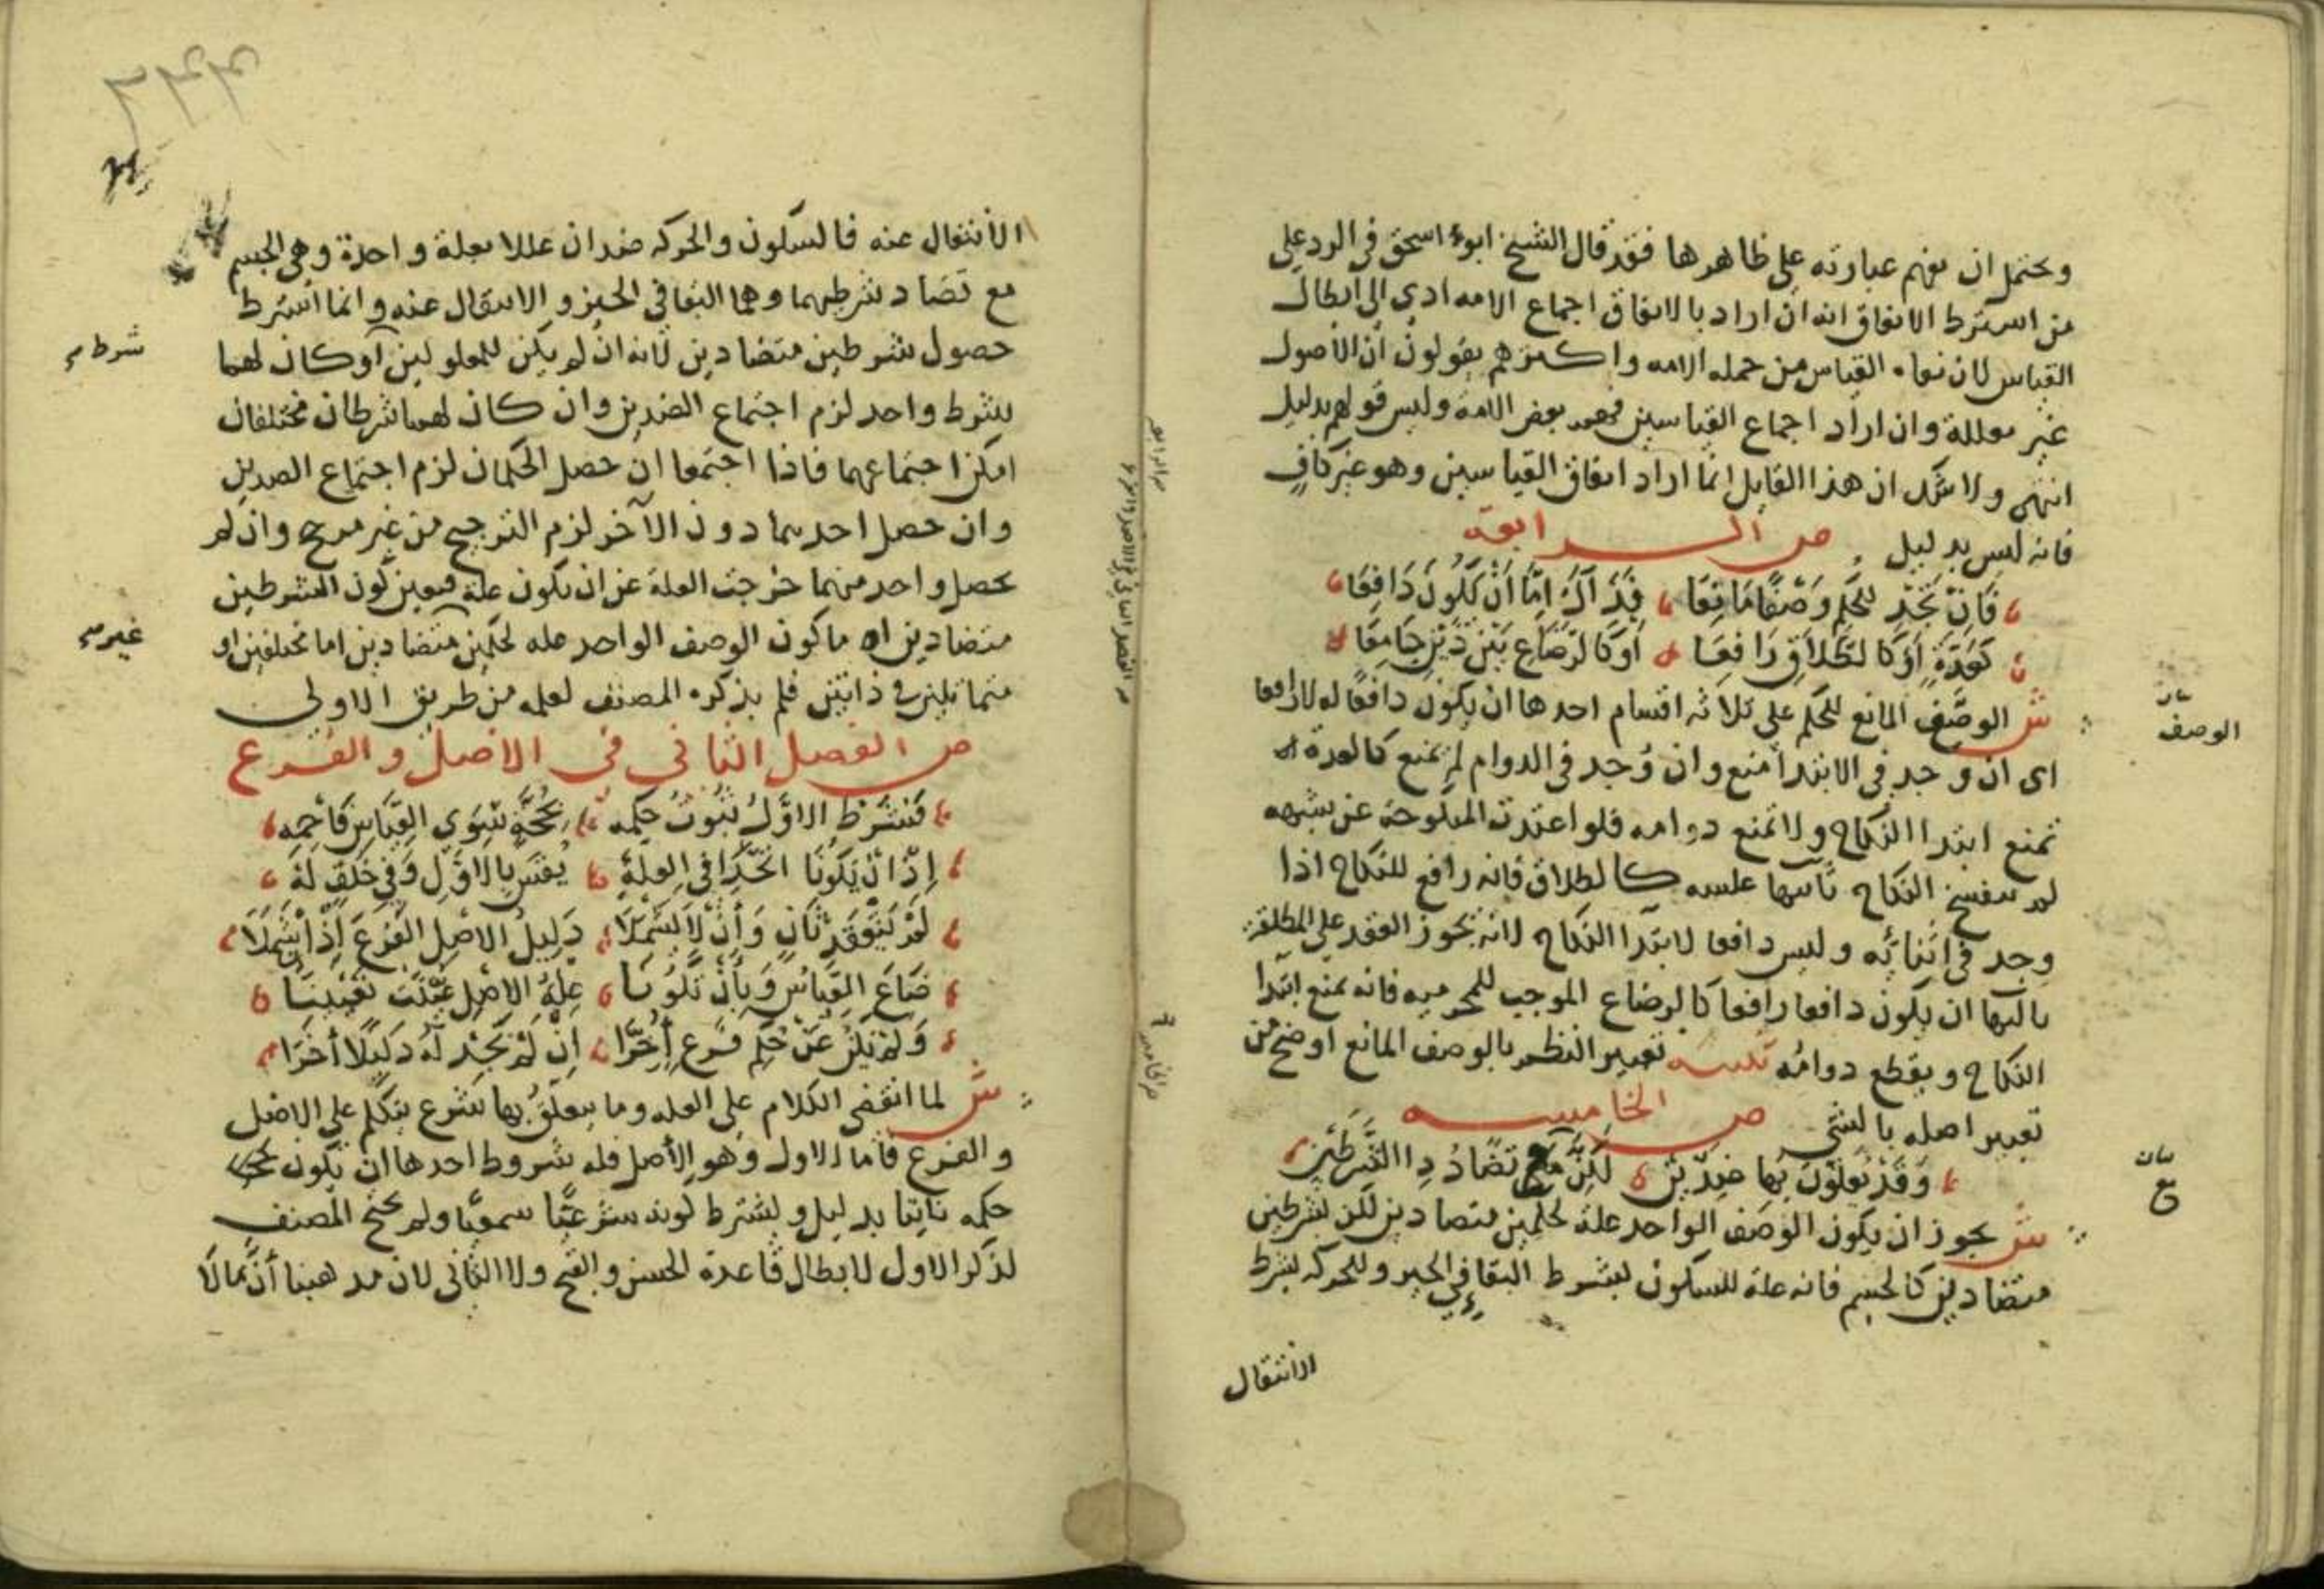 ويحتمل ان يفهم عبارته على ظاهرها فقد قال الشيخ ابو اسحق في الرد على
من اشترط الاتفاق انه ان اراد بالاتفاق اجماع الامه ادى الى ابطال
القياس لان نفاه القياس من جمله الامه واكثرهم يقولون أن الأصول
غير معللة وان اراد اجماع القياسيين فهم بعض الامة وليس قولهم بدليل
انتهى ولا شك ان هذا القايل انما اراد اتفاق القياسيين وهو غير كافٍ
فانه ليس بدليل ص الــرابعة
فَاِنْ تَجِدْ لِلحُكْمِ وَصْفًا مَانِعَا فَذَاكَ اِمَّا أَنْ يَكُونَ دَافِعَا
كَعِدَّةٍ أَوْ كَالطَّلَاقِ رَافِعَا أَوْ كَالرَّضَاعِ بَيْنَ ذَيْنِ جَامِعَا
ش الوصف المانع للحكم على ثلاثه اقسام احدها ان يكون دافعًا له لا رافعا
اى ان وجد في الابتدا منع وان وُجد في الدوام لم يمنع كالعدة
تمنع ابتدا النكاح ولا تمنع دوامه فلو اعتدت المنكوحة عن شبهه
لم ينفسخ النكاح ثانيها عكسه كالطلاق فانه رافع للنكاح اذا
وجد في اثنائه وليس دافعا لابتدا النكاح لانه يجوز العقد على المطلقة
ثالثها ان يكون دافعا رافعا كالرضاع الموجب للمحرميه فانه يمنع ابتدا
النكاح ويقطع دوامه تنبيه تعبير النظم بالوصف المانع اوضح من
تعبير اصله بالشي ص الخامسه
وَقَدْ يُعَلِّلُونَ بِهَا ضِدَّيْنِ لَكِنْ مَعْ تَضَادُدِ الشَّرْطَيْنِ
ش يجوز ان يكون الوصف الواحد علة لحكمين متضادين لكن بشرطين
متضادين كالجسم فانه علة للسكون بشرط البقا في الحيز وللحركه بشرط
الانتقال
بيان
الوصف
بيان
مع
الأنتقال عنه فالسكون والحركه ضدان عللا بعلة واحدة وهي الجسم
مع تضاد شرطيهما وهما البقا في الحيز والانتقال عنه وانما اشترط
حصول شرطين متضادين لانه ان لم يكن للمعلولين أو كان لهما
شرط واحد لزم اجتماع الضدين وان كان لهما شرطان مختلفان
امكن اجتماعهما فاذا اجتمعا ان حصل الحكمان لزم اجتماع الضدين
وان حصل احدهما دون الآخر لزم الترجيح من غير مرجح وان لم
يحصل واحد منهما خرجت العلة عن ان تكون علة فتعين كون الشرطين
متضادين اما كون الوصف الواحد عله لحكمين متضادين اما مختلفين او
متماثلين في ذاتين فلم يذكره المصنف لعلمه من طريق الاولى
ص الفصل الثاني في الاصل والفرع
فَشَرْطُ الاوَّلِ ثُبُوتُ حُكْمِه بِحُجَّةٍ سِوَى القِيَاسِ فَاحْمِهِ
اِذْ اِنْ يَكُونَا اتَّحَدَا في العِلَّةِ يُقَسْ بِالاوَّلِ وَفِي خُلْفٍ لَهْ
لَمْ يَنْعَقِدْ ثَانٍ وَأَنْ لَا يَشْمَلَا دَلِيلُ الاصْلِ الفَرْعَ إِذْ إِنْ شَمَلَا
ضَاعَ القِيَاسُ وَبِأَنْ تَكُونَا عِلَّةُ الاصْلِ عُيِّنَتْ تَعْيِينَا
وَلَمْ يَكُنْ عَنْ حُكْمِ فَرْعٍ أُخِّرَا إِنْ لَمْ نَجِدْ لَهُ دَلِيلًا آخَرَا
ش لما انقضى الكلام على العله وما يتعلق بها شرع يتكلم على الاصل
والفرع فاما الاول وهو الأصل فله شروط احدها ان يكون
حكمه ثابتا بدليل ويشترط كونه شرعيًا سمعيًا ولم يحتج المصنف
لذكر الاول لابطال قاعدة الحسن والقبح ولا الثاني لان مذهبنا أن ما لا
شرط
غير